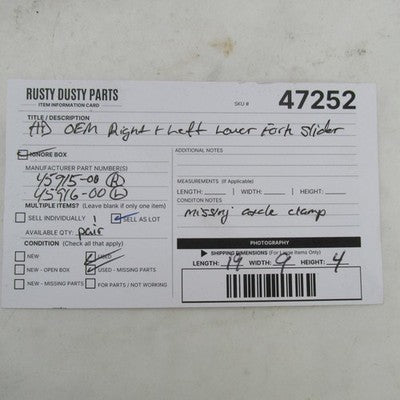 RUSTY DUSTY PARTS
ITEM INFORMATION CARD
SKU # 47252
TITLE / DESCRIPTION
HD OEM Right + Left Lower Fork Slider
IGNORE BOX
MANUFACTURER PART NUMBER(S)
45915-00 (R)
45916-00 (L)
MULTIPLE ITEMS? (Leave blank if only one item)
SELL INDIVIDUALLY SELL AS LOT
AVAILABLE QTY: 1 pair
CONDITION (Check all that apply)
NEW USED
NEW - OPEN BOX USED - MISSING PARTS
NEW - MISSING PARTS FOR PARTS / NOT WORKING
ADDITIONAL NOTES
MEASUREMENTS (If Applicable)
LENGTH: WIDTH: HEIGHT:
CONDITON NOTES
missing axle clamp
PHOTOGRAPHY
SHIPPING DIMENSIONS (For Large Items Only)
LENGTH: 19 WIDTH: 9 HEIGHT: 4